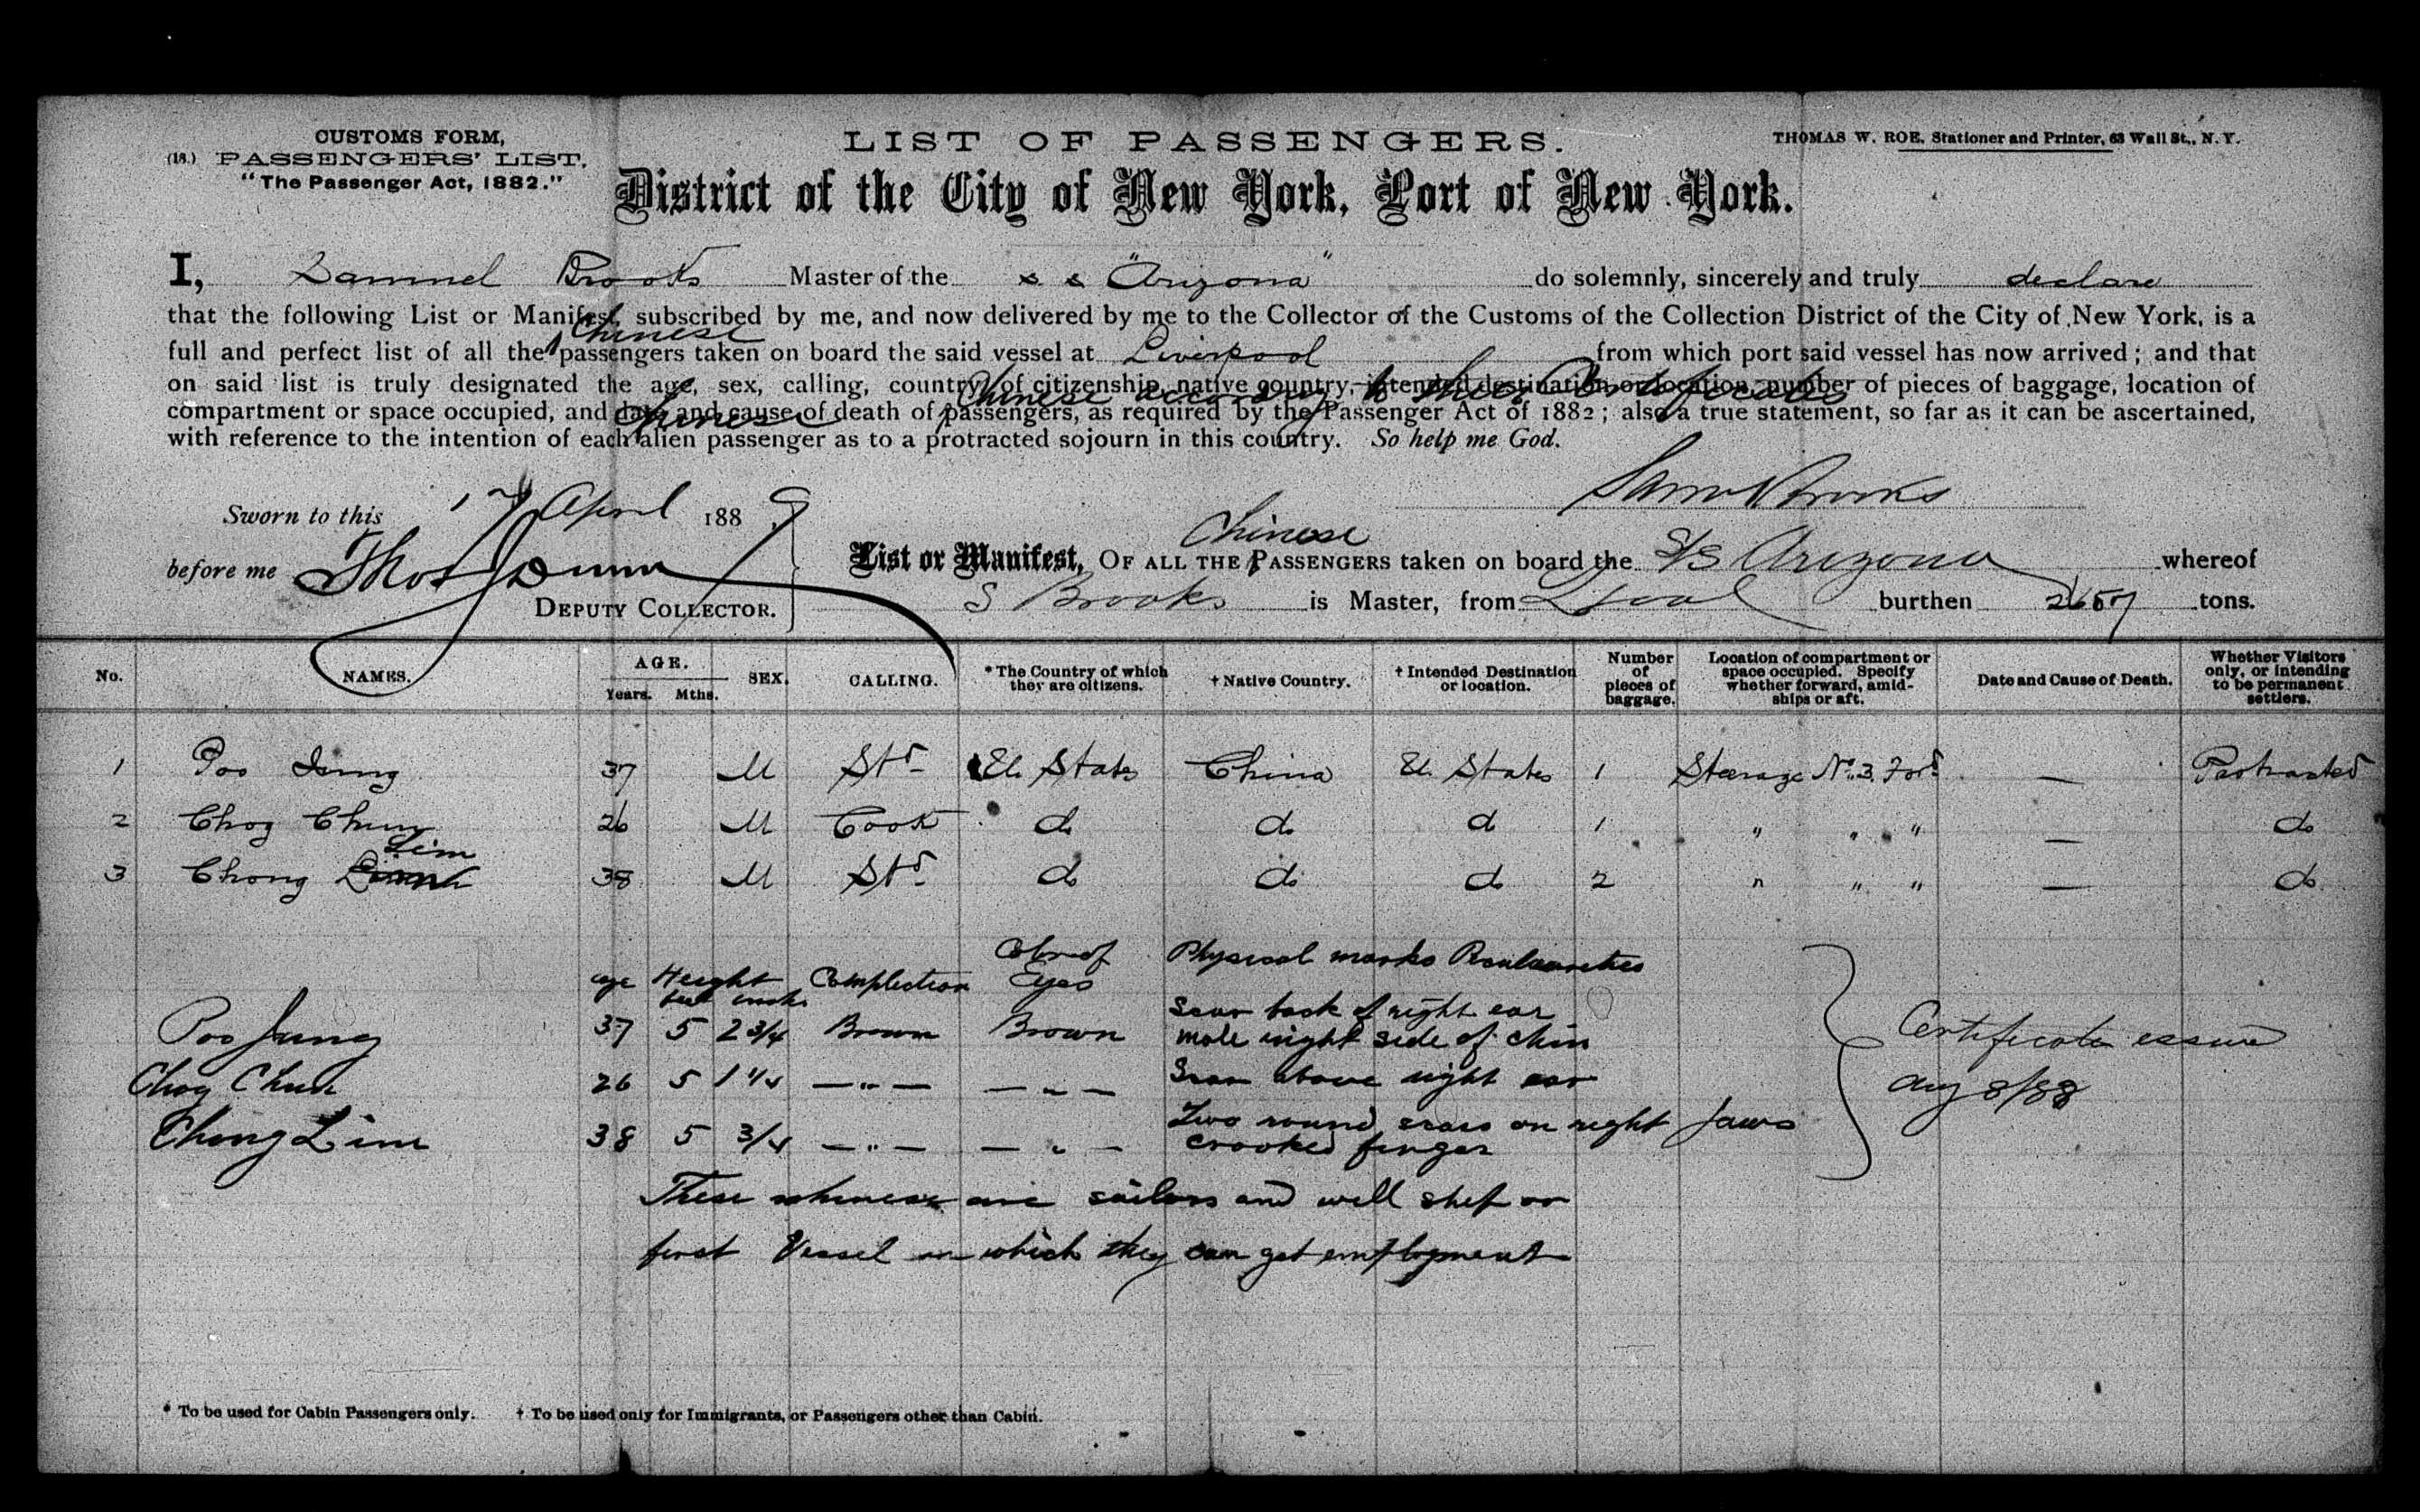 CUSTOMS FORM,
(18.) PASSENGERS' LIST,
"The Passenger Act, 1882."
LIST OF PASSENGERS.
THOMAS W. ROE, Stationer and Printer, 63 Wall St., N. Y.
District of the City of New York, Port of New York.
I, Samuel Brooks Master of the s s "Arizona" do solemnly, sincerely and truly declare
that the following List or Manifest, subscribed by me, and now delivered by me to the Collector of the Customs of the Collection District of the City of New York, is a
Chinese
full and perfect list of all the passengers taken on board the said vessel at Liverpool from which port said vessel has now arrived; and that
on said list is truly designated the age, sex, calling, country of citizenship, native country, intended destination or location, number of pieces of baggage, location of
Chinese according to their Certificates
compartment or space occupied, and date and cause of death of passengers, as required by the Passenger Act of 1882; also a true statement, so far as it can be ascertained,
Chinese
with reference to the intention of each alien passenger as to a protracted sojourn in this country. So help me God.
Saml Brooks
Sworn to this 17 April 1889
before me Thos J Dunn
DEPUTY COLLECTOR.
Chinese
List or Manifest, OF ALL THE PASSENGERS taken on board the S/S Arizona whereof
S Brooks is Master, from L'pool burthen 2657 tons.
No. NAMES. AGE. Years. Mths. SEX. CALLING. * The Country of which they are citizens. † Native Country. † Intended Destination or location. Number of pieces of baggage. Location of compartment or space occupied. Specify whether forward, amidships or aft. Date and Cause of Death. Whether Visitors only, or intending to be permanent settlers.
1 Poo Jung 37 M Std U. States China U. States 1 Steerage No. 3 Ford — Protracted
2 Choy Chun 26 M Cook do do do 1 " " " — do
Lim
3 Chong 38 M Std do do do 2 " " " — do
age Height feet inch. Complection Color of Eyes Physical marks Peculiarities
Scar back of right ear
Poo Jung 37 5 2 3/4 Brown Brown mole right side of chin
Choy Chun 26 5 1 1/4 — " — — " — Scar above right ear
Two round scars on right Jaws
Chong Lim 38 5 3/4 — " — — " — crooked finger
Certificate issued
Aug 8/88
These chinese are sailors and will ship on
first Vessel in which they can get employment
* To be used for Cabin Passengers only. † To be used only for Immigrants, or Passengers other than Cabin.